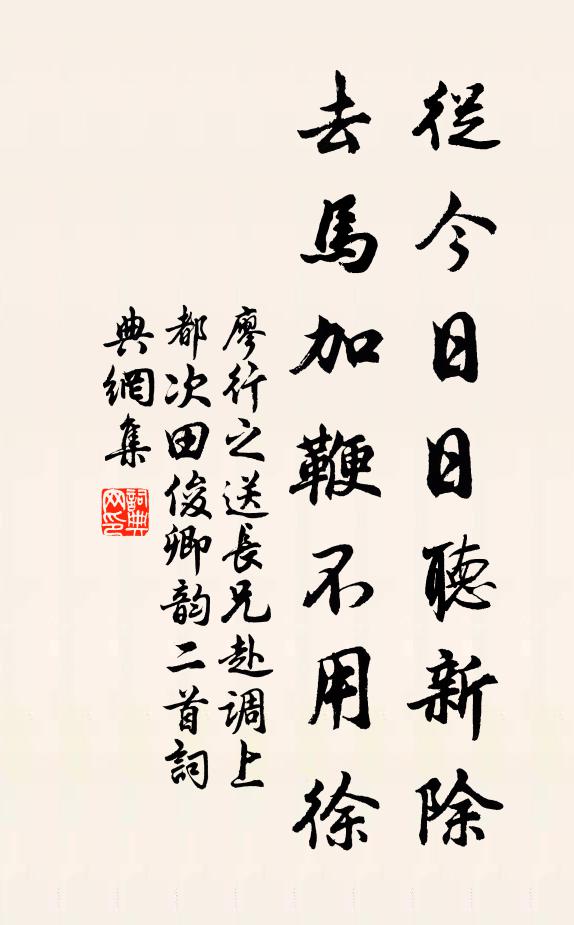 從今日日聽新除
去馬加鞭不用徐
廖行之送長兄赴调上
都次田俊卿韵二首詞
典網集
詞典
网印